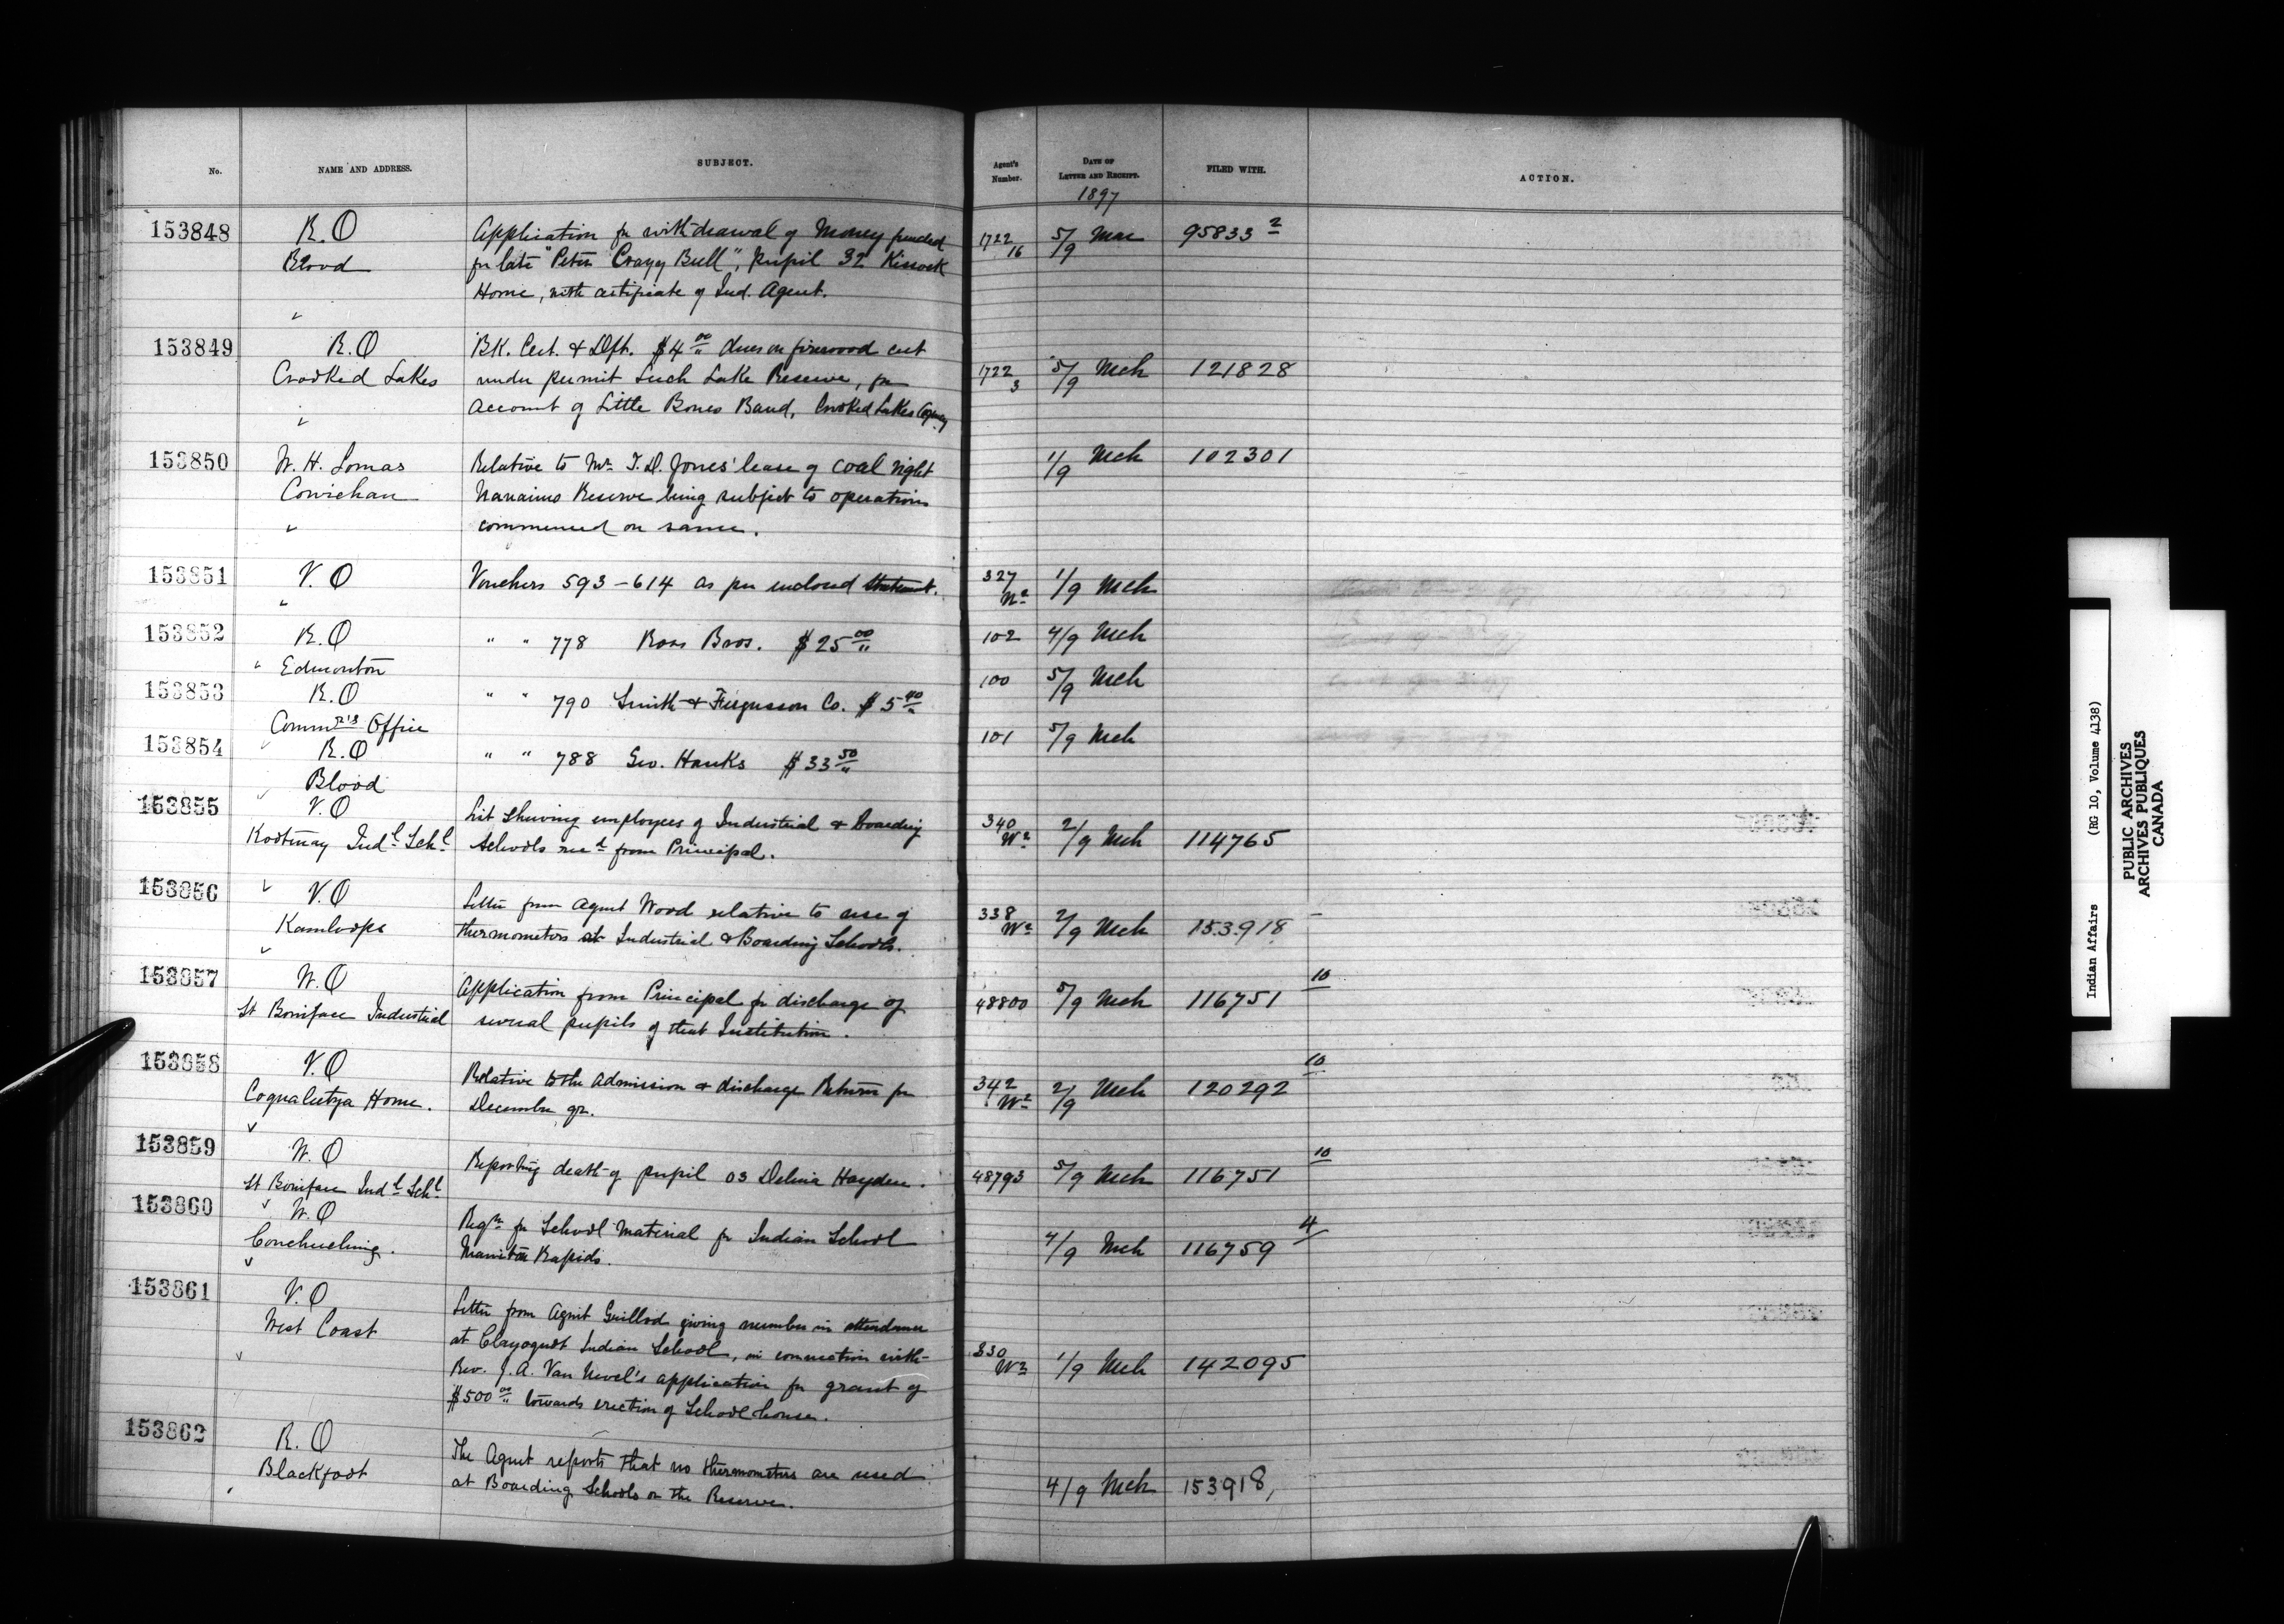 No. NAME AND ADDRESS. SUBJECT. Agent's Number. DATE OF LETTER AND RECEIPT. FILED WITH. ACTION.
1897
153848 R.O Application for withdrawal of Money funded 1722/16 5/9 Mar 95833 2
Blood for late "Peter Crazy Bull", pupil 32 Kissock
Home, with certificate of Ind. Agent.
153849 R.O BK. Cert. & Dft. $4 00 dues on firewood cut
Crooked Lakes under permit Leech Lake Reserve, for 1722/3 5/9 Mch 121828
account of Little Bones Band, Crooked Lakes Agency
153850 W. H. Lomas Relative to Mr. T.D. Jones' lease of coal right 1/9 Mch 102301
Cowichan Nanaimo Reserve being subject to operations
commenced on same.
153851 V.O Vouchers 593-614 as per enclosed statement. 327 1/9 Mch
153852 R.O " " 778 Ross Bros. $25 00 102 4/9 Mch
Edmonton
153853 R.O " " 790 Smith & Fergusson Co. $5 40 100 5/9 Mch
Commr's Office
153854 R.O " " 788 Geo. Hanks $33 50 101 5/9 Mch
Blood
153855 V.O List shewing employees of Industrial & Boarding 340 W2 2/9 Mch 114765
Kootenay Indl. Schl. Schools recd from Principal.
153856 V.O Letter from Agent Wood relative to use of 338 W2 2/9 Mch 153918
Kamloops thermometers at Industrial & Boarding Schools.
153857 W.O Application from Principal for discharge of 48800 5/9 Mch 116751 10
St Boniface Industrial several pupils of that Institution.
153858 V.O Relative to the Admission & discharge Return for 342 W2 2/9 Mch 120292 10
Coqualeetza Home. December qr.
153859 W.O Reporting death of pupil 03 Delima Hayden. 48793 5/9 Mch 116751 10
St Boniface Indl. Schl.
153860 W.O Reqn for School Material for Indian School 4/9 Mch 116759 4
Couchiching. Manitou Rapids.
153861 V.O Letter from Agent Guillod giving number in attendance
West Coast at Clayoquot Indian School, in connection with
Rev. J. A. Van Nevel's application for grant of 330 W2 1/9 Mch 142095
$500 00 towards erection of School house.
153862 R.O The Agent reports that no thermometers are used
Blackfoot at Boarding Schools on the Reserve. 4/9 Mch 153918,
Indian Affairs (RG 10, Volume 4138)
PUBLIC ARCHIVES
ARCHIVES PUBLIQUES
CANADA